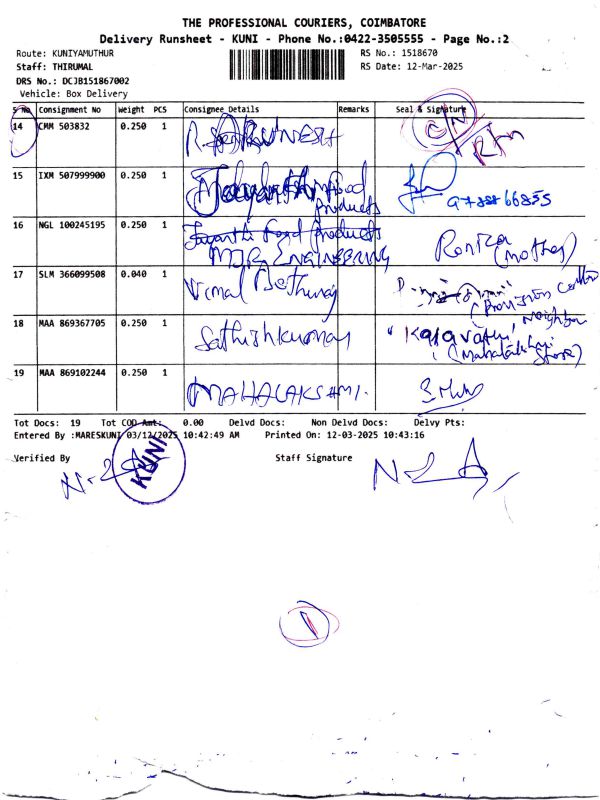 THE PROFESSIONAL COURIERS, COIMBATORE
Delivery Runsheet - KUNI - Phone No.:0422-3505555 - Page No.:2
Route: KUNIYAMUTHUR RS No.: 1518670
Staff: THIRUMAL RS Date: 12-Mar-2025
DRS No.: DCJB151867002
Vehicle: Box Delivery
S No Consignment No Weight PCS Consignee Details Remarks Seal & Signature
14 CMM 503832 0.250 1
15 IXM 507999900 0.250 1 Jayanthi Food
Products
16 NGL 100245195 0.250 1 Jayanthi Food Products
MJR ENGINEERING Renuka
(Mother)
17 SLM 366099508 0.040 1 Vimal
18 MAA 869367705 0.250 1 Sathishkumar Kalavathi, Neighbour
(Mahalakshmi
Store)
19 MAA 869102244 0.250 1 MAHALAKSHMI.
Tot Docs: 19 Tot COD Amt: 0.00 Delvd Docs: Non Delvd Docs: Delvy Pts:
Entered By :MARESKUNI 03/12/2025 10:42:49 AM Printed On: 12-03-2025 10:43:16
Verified By Staff Signature
KUNI